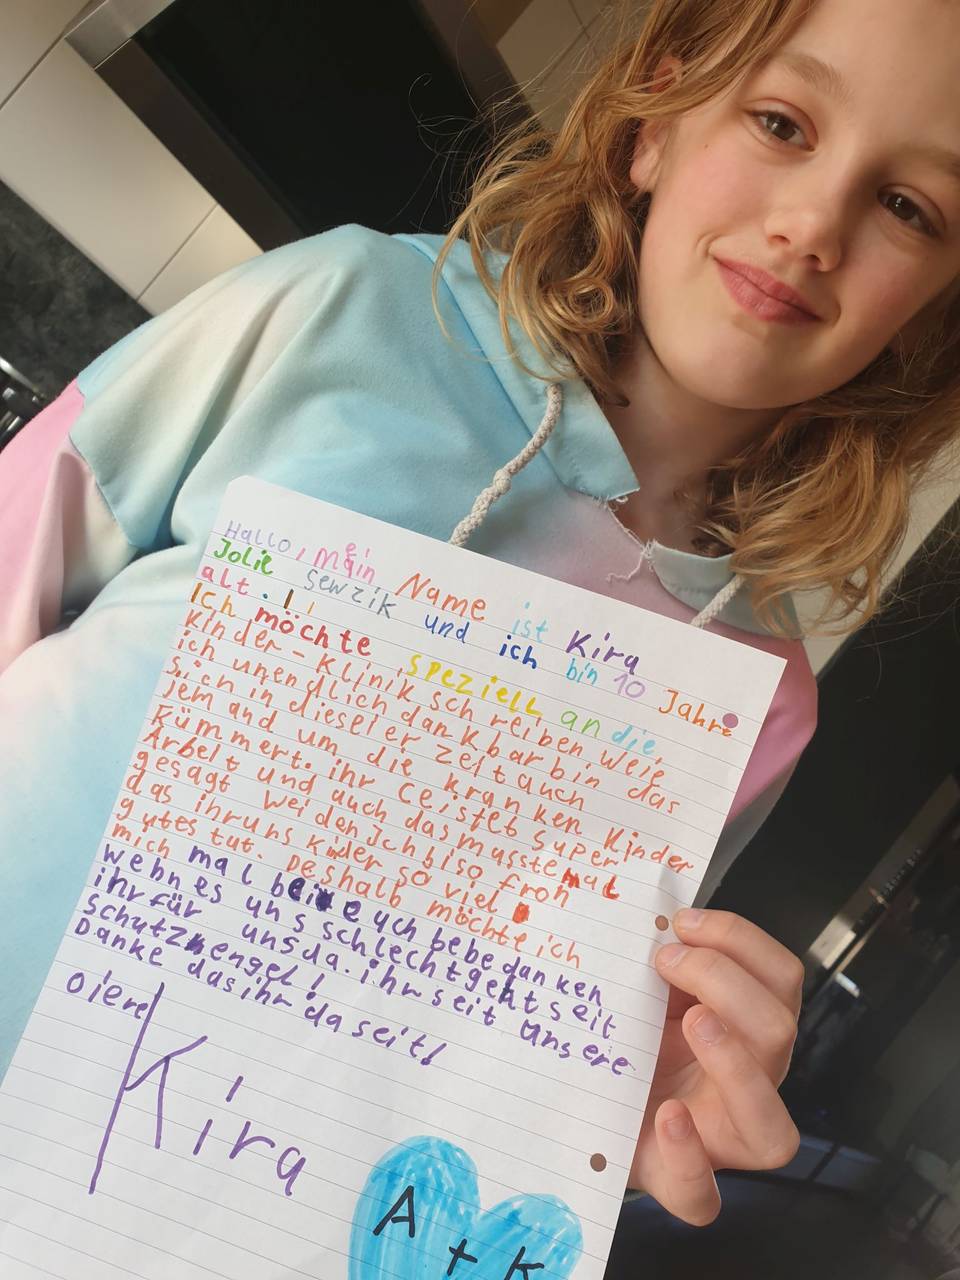 Hallo, mein Name ist Kira
Jolie Sewzik und ich bin 10 Jahre
alt.
Ich möchte speziell an die
Kinder-Klinik schreiben weie
ich unendlich dankbar bin das
sich in dieser Zeit auch
jemand um die kranken Kinder
kümmert. ihr leistet super
Arbeit und auch das musste mal
gesagt weiden Ich bi so froh
das ihr uns Kider so viel
gutes tut. Deshalb möchte ich
mich mal bei euch bebedanken
wehn es uns schlecht geht seit
ihr für uns da. ihr seit unsere
Schutzengel!
Danke das ihr da seit!
Kira
A + K